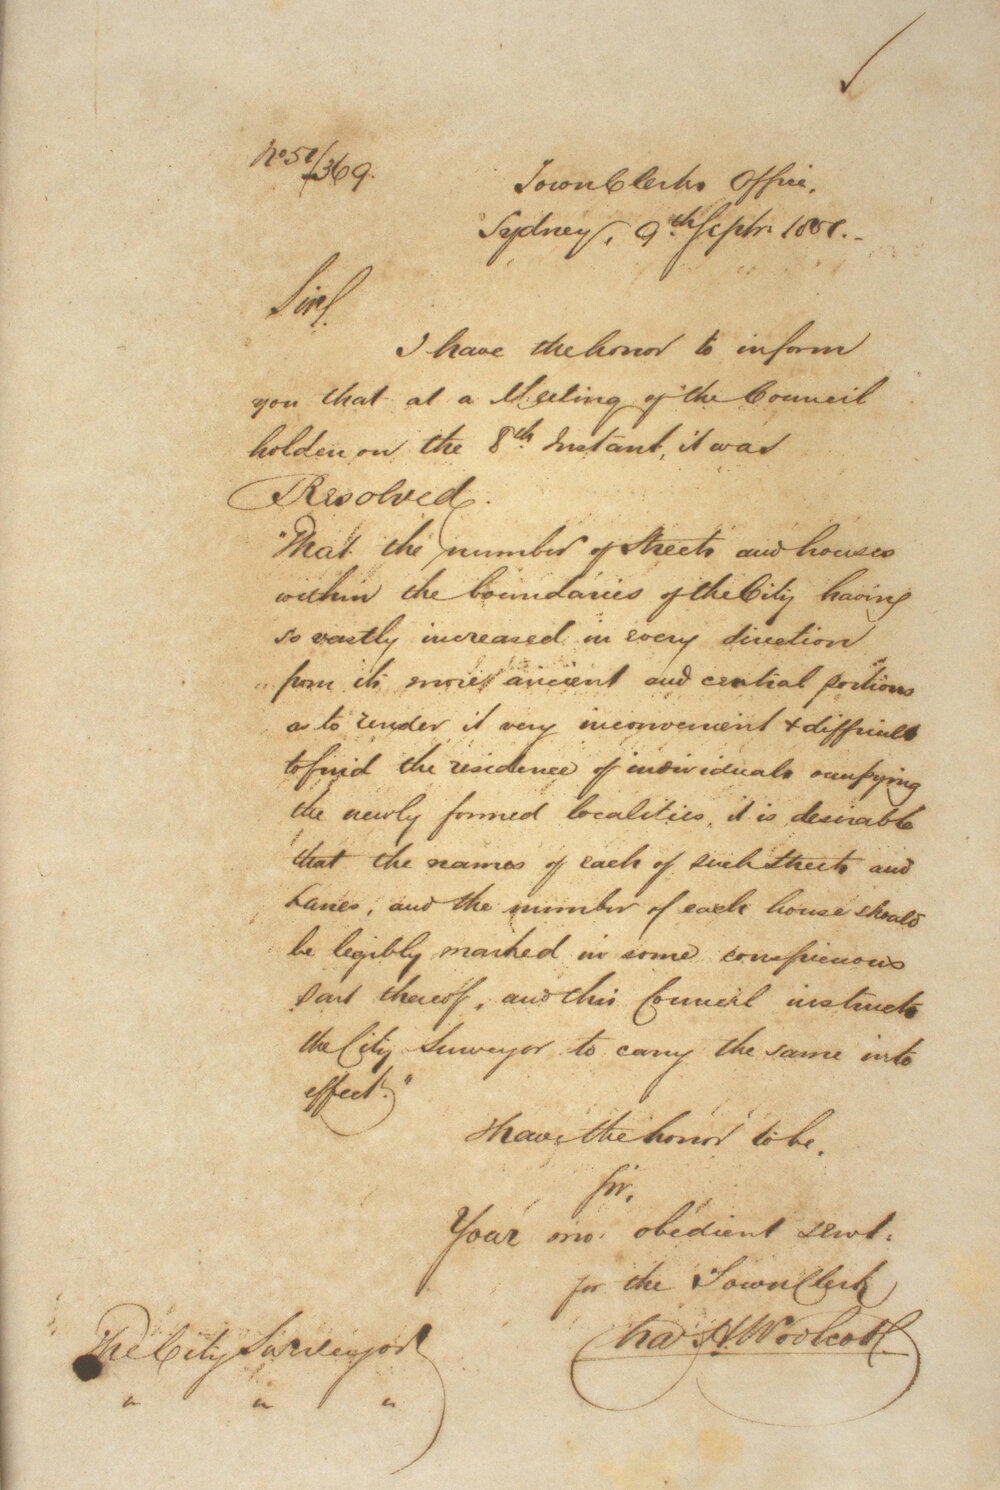 No 51/369.
Town Clerks Office,
Sydney, 9th Septr 1851.
Sir,
I have the honor to inform
you that at a Meeting of the Council
holden on the 8th Instant, it was
Resolved.
"That the number of Streets and houses
within the boundaries of the City having
so vastly increased in every direction
from its more ancient and central portions
as to render it very inconvenient & difficult
to find the residence of individuals occupying
the newly formed localities, it is desirable
that the names of each of such Streets and
Lanes, and the number of each house should
be legibly marked in some conspicuous
part thereof, and this Council instructs
the City Surveyor to carry the same into
effect."
I have the honor to be,
Sir,
Your mo. obedient servt.
for the Town Clerk
Chas H. Woolcott
The City Surveyor
" " "